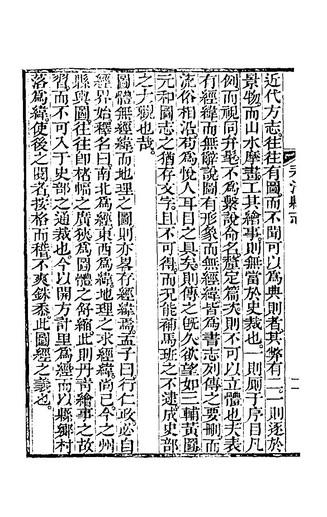 近代方志往往有圖而不聞可以為典則者其弊有二一則逐於
景物而山水摩畫工其繪事則無當於史裁也一則厠于序目凡
例而視同弁髦不為繫說命名釐定篇次則不可以立體也夫表
有經緯而無辭說圖有形象而無經緯皆為書志列傳之要刪而
流俗相沿苟為悅人耳目之具矣則傳之既久欲望如三輔黃圖
元和圖志之猶存文字且不可得而况能補馬班之不逮成史部
之大觀也哉
圖體無經緯而地理之圖則亦畧存經緯焉孟子曰行仁政必自
經界始釋名曰南北為經東西為緯地理之求經緯尚已今之州
縣輿圖往往即楮幅之廣狹為圖體之舒縮此則丹青繪事之故
習而不可入于史部之通裁也今以開方計里為經而以縣鄉村
落為緯使後之閱者按格而稽不爽銖黍此圖經之義也